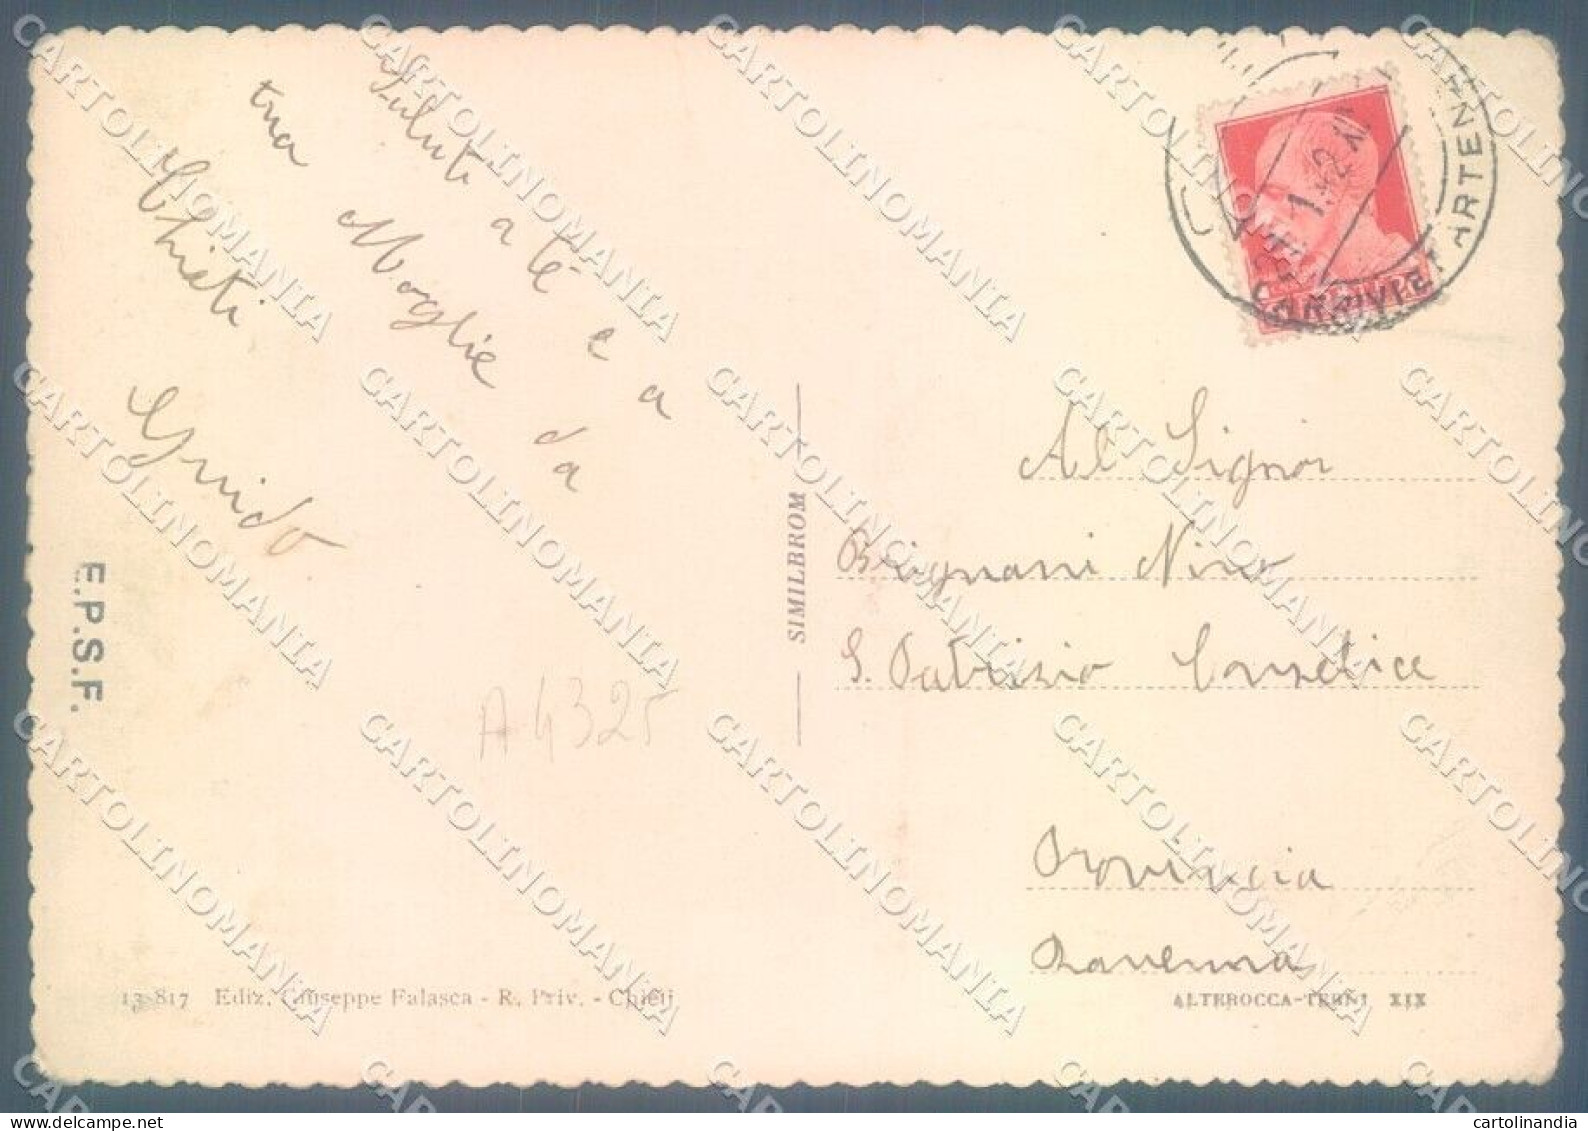 Saluti a te e a
tua Moglie da
Chieti
Guido
E.P.S.F.
A 4325
SIMILBROM
Al Signor
Brignani Nino
S. Patrizio Conselice
Provincia
Ravenna
13-817 Ediz. Giuseppe Falasca - R. Priv. - Chieti
ALTEROCCA-TERNI XIX
CARTOLINOMANIA
cartolinandia